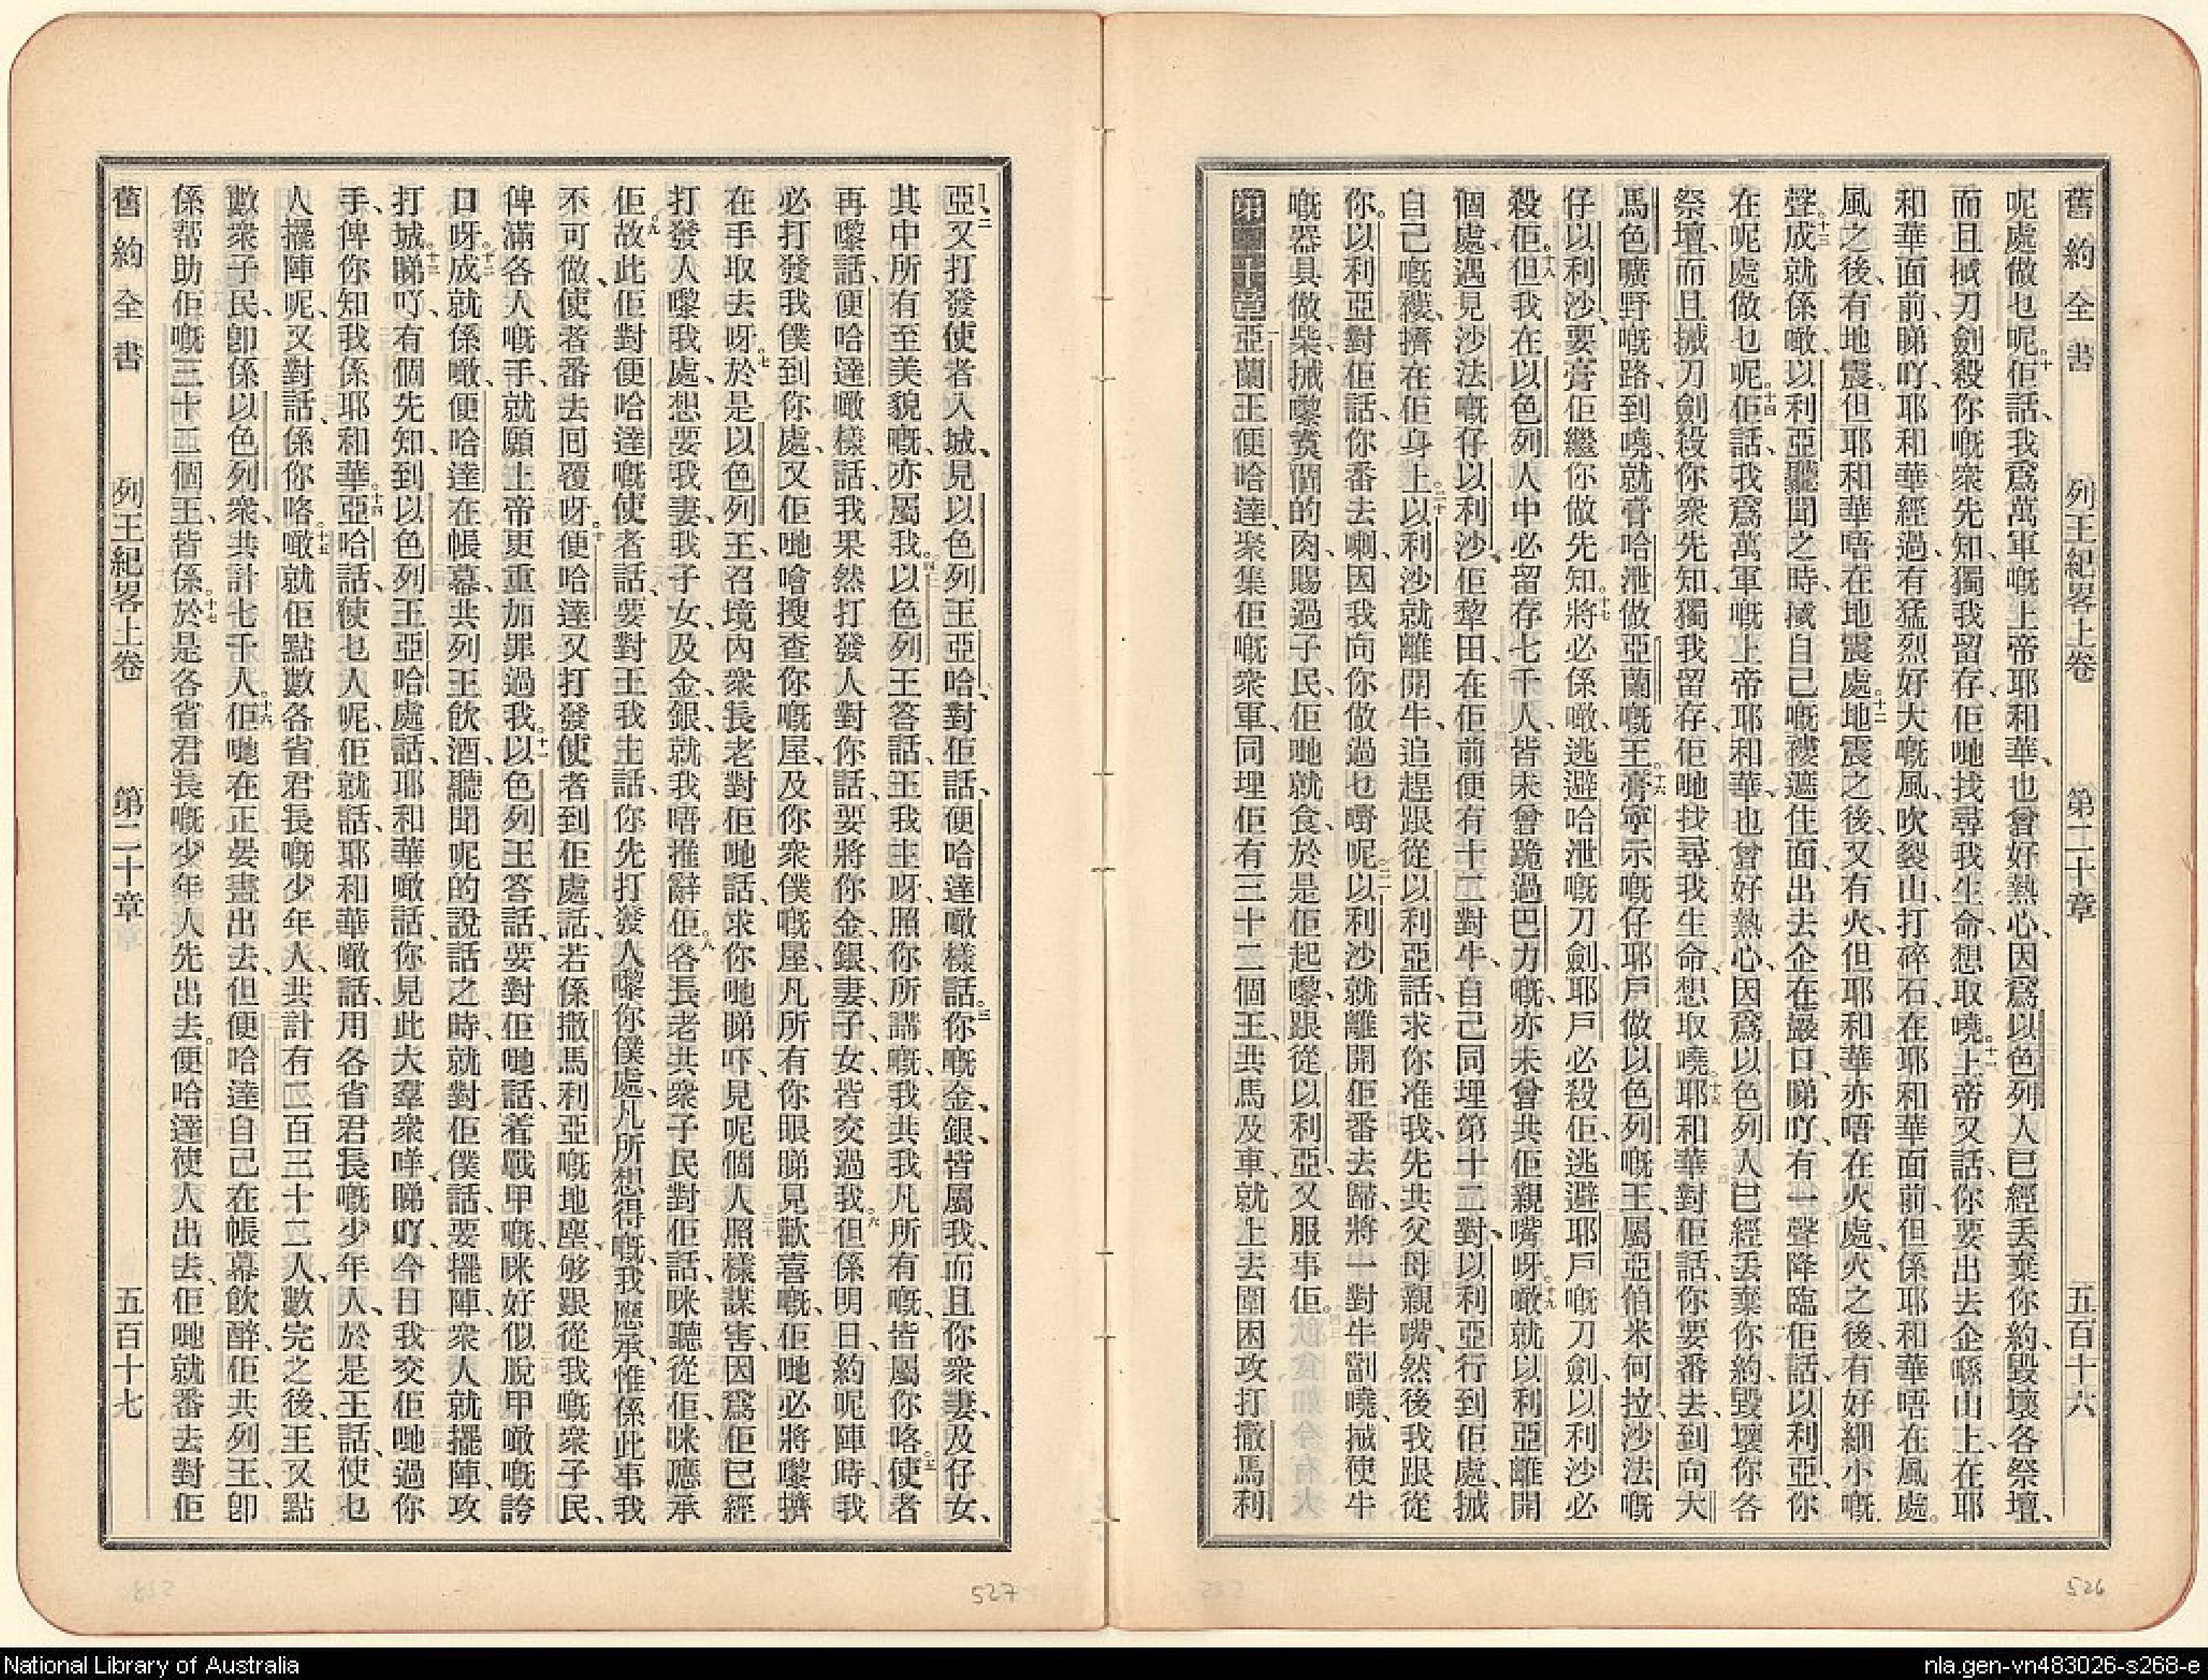 舊約全書 列王紀畧上卷 第二十章 五百十六
呢處做乜呢。十佢話、我爲萬軍嘅上帝耶和華、也曾好熱心、因爲以色列人已經丟棄你約、毀壞各祭壇、
而且搣刀劍殺你嘅衆先知、獨我留存、佢哋找尋我生命、想取嘵。十一上帝又話、你要出去企喺山上、在耶
和華面前、睇吖、耶和華經過、有猛烈好大嘅風、吹裂山、打碎石、在耶和華面前、但係耶和華唔在風處。
風之後、有地震、但耶和華唔在地震處。十二地震之後、又有火、但耶和華亦唔在火處、火之後、有好細小嘅
聲。十三成就係噉、以利亞聽聞之時、搣自己嘅褸遮住面、出去企在巖口、睇吖、有一聲降臨佢話、以利亞、你
在呢處做乜呢。十四佢話、我爲萬軍嘅上帝耶和華、也曾好熱心、因爲以色列人已經丟棄你約、毀壞你各
祭壇、而且搣刀劍殺你衆先知、獨我留存、佢哋找尋我生命、想取嘵。十五耶和華對佢話、你要番去、到向大
馬色曠野嘅路、到嘵、就膏哈泄做亞蘭嘅王。十六膏寧示嘅仔耶戶做以色列嘅王、屬亞伯米何拉、沙法嘅
仔以利沙、要膏佢繼你做先知。十七將必係噉、逃避哈泄嘅刀劍、耶戶必殺佢、逃避耶戶嘅刀劍、以利沙必
殺佢。十八但我在以色列人中、必留存七千人、皆未曾跪過巴力嘅、亦未曾共佢親嘴呀。十九噉就以利亞離開
個處、遇見沙法嘅仔以利沙、佢犂田、在佢前便有十二對牛、自己同埋第十二對、以利亞行到佢處、搣
自己嘅褸、擠在佢身上。二十以利沙就離開牛、追趕跟從以利亞話、求你准我、先共父母親嘴、然後我跟從
你。以利亞對佢話、你番去喇、因我向你做過乜嘢呢。二一以利沙就離開佢番去歸、將一對牛劏嘵、搣使牛
嘅器具做柴、搣嚟𤏪個的肉、賜過子民、佢哋就食、於是佢起嚟、跟從以利亞、又服事佢。
第二十章一亞蘭王便哈達、聚集佢嘅衆軍、同埋佢有三十二個王、共馬及車、就上去圍困攻打撒馬利
亞、二又打發使者入城、見以色列王亞哈、對佢話、便哈達噉樣話。三你嘅金、銀、皆屬我、而且你衆妻、及仔女、
其中所有至美貌嘅、亦屬我。四以色列王答話、王我主呀、照你所講嘅、我共我凡所有嘅、皆屬你咯。五使者
再嚟話、便哈達噉樣話、我果然打發人對你話、要將你金、銀、妻、子女、皆交過我。六但係明日、約呢陣時、我
必打發我僕到你處、又佢哋噲搜查你嘅屋、及你衆僕嘅屋、凡所有你眼睇見歡喜嘅、佢哋必將嚟擠
在手取去呀。七於是以色列王、召境內衆長老對佢哋話、求你哋睇吓、見呢個人照樣謀害、因爲佢已經
打發人嚟我處、想要我妻、我子女、及金銀、就我唔推辭佢。八各長老共衆子民對佢話、咪聽從佢、咪應承
佢。九故此佢對便哈達嘅使者話、要對王我主話、你先打發人嚟你僕處、凡所想得嘅、我應承、惟係此事我
不可做、使者番去回覆呀。十便哈達又打發使者到佢處話、若係撒馬利亞嘅地塵、够跟從我嘅衆子民、
俾滿各人嘅手、就願上帝更重加罪過我。十一以色列王答話、要對佢哋話、着戰甲嘅、咪好似脫甲噉嘅誇
口呀。十二成就係噉、便哈達在帳幕、共列王飲酒、聽聞呢的說話之時、就對佢僕話、要擺陣、衆人就擺陣、攻
打城。十三睇吖、有個先知、到以色列王亞哈處話、耶和華噉話、你見此大羣衆咩、睇吖、今日我交佢哋過你
手、俾你知我係耶和華。十四亞哈話、使乜人呢、佢就話、耶和華噉話、用各省君長嘅少年人、於是王話、使乜
人擺陣呢、又對話、係你咯。十五噉就佢點數各省君長嘅少年人、共計有二百三十二人、數完之後、王又點
數衆子民、即係以色列衆、共計七千人。十六佢哋在正晏晝出去、但便哈達自己在帳幕飲醉、佢共列王、即
係帮助佢嘅三十二個王、皆係。十七於是各省君長嘅少年人先出去。便哈達使人出去、佢哋就番去對佢
舊約全書 列王紀畧上卷 第二十章 五百十七
527
526
National Library of Australia
nla.gen-vn483026-s268-e